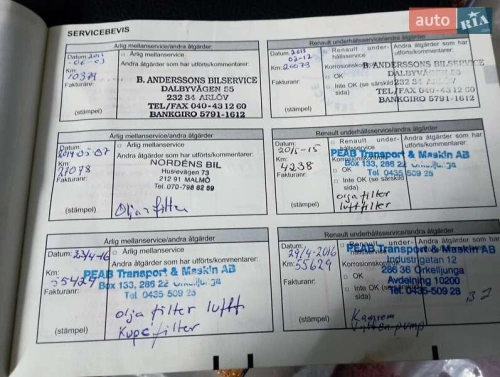 auto RIA.com
SERVICEBEVIS
Årlig mellanservice/andra åtgärder
Datum: 2013
Andra åtgärder som har utförts/kommentarer:
Km:
Fakturanr:
B. ANDERSSONS BILSERVICE
DALBYVÄGEN 55
232 34 ARLÖV
TEL/FAX 040-43 12 60
BANKGIRO 5791-1612
(stämpel)
Renault underhållsservice/andra åtgärder
Datum: 2013
Renault underhållsservice
Andra åtgärder som har utförts/kommentarer:
Km:
Korrosionskontroll
OK
Inte OK (se särskild sida)
Fakturanr:
B. ANDERSSONS BILSERVICE
DALBYVÄGEN 55
232 34 ARLÖV
TEL/FAX 040-43 12 60
BANKGIRO 5791-1612
(stämpel)
Årlig mellanservice/andra åtgärder
Datum:
Andra åtgärder som har utförts/kommentarer:
Km:
Fakturanr:
NORDENS BIL
Husievägen 73
212 91 MALMÖ
Tel. 070-798 82 69
(stämpel)
filter
Renault underhållsservice/andra åtgärder
Datum:
Renault underhållsservice
Andra åtgärder som har utförts/kommentarer:
Km: 4238
OK
Inte OK (se särskild sida)
Fakturanr:
PEAB Transport & Maskin AB
Box 133, 286 22 Örkelljunga
Tel. 0435 509 25
olja filter
luftfilter
(stämpel)
Årlig mellanservice/andra åtgärder
Datum: 22/4-16
Andra åtgärder som har utförts/kommentarer:
Km: 55429
Fakturanr:
PEAB Transport & Maskin AB
Box 133, 286 22 Örkelljunga
Tel. 0435 509 25
olja filter luft
Kupefilter
(stämpel)
Renault underhållsservice/andra åtgärder
Datum: 29/4-2016
Km: 55629
Korrosionskontroll
OK
Fakturanr:
PEAB Transport & Maskin AB
Industrigatan 12
286 36 Örkelljunga
Avdelning 10200
Tel. 0435-509 25
Kamrem
Vattenpump
(stämpel)